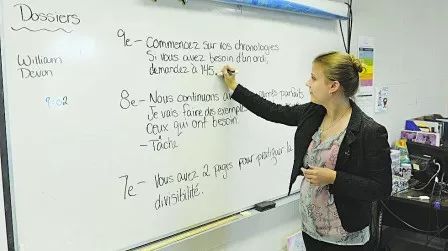 Dossiers
William
Devon
9:02
9e - Commencez sur vos chronologies
Si vous avez besoin d'un ordi,
demandez à 145.
8e - Nous continuons parfaits
Je vais faire des
ceux qui ont besoin
- Tâche
7e - Vous avez 2 pages pour pratiquer la
divisibilité.